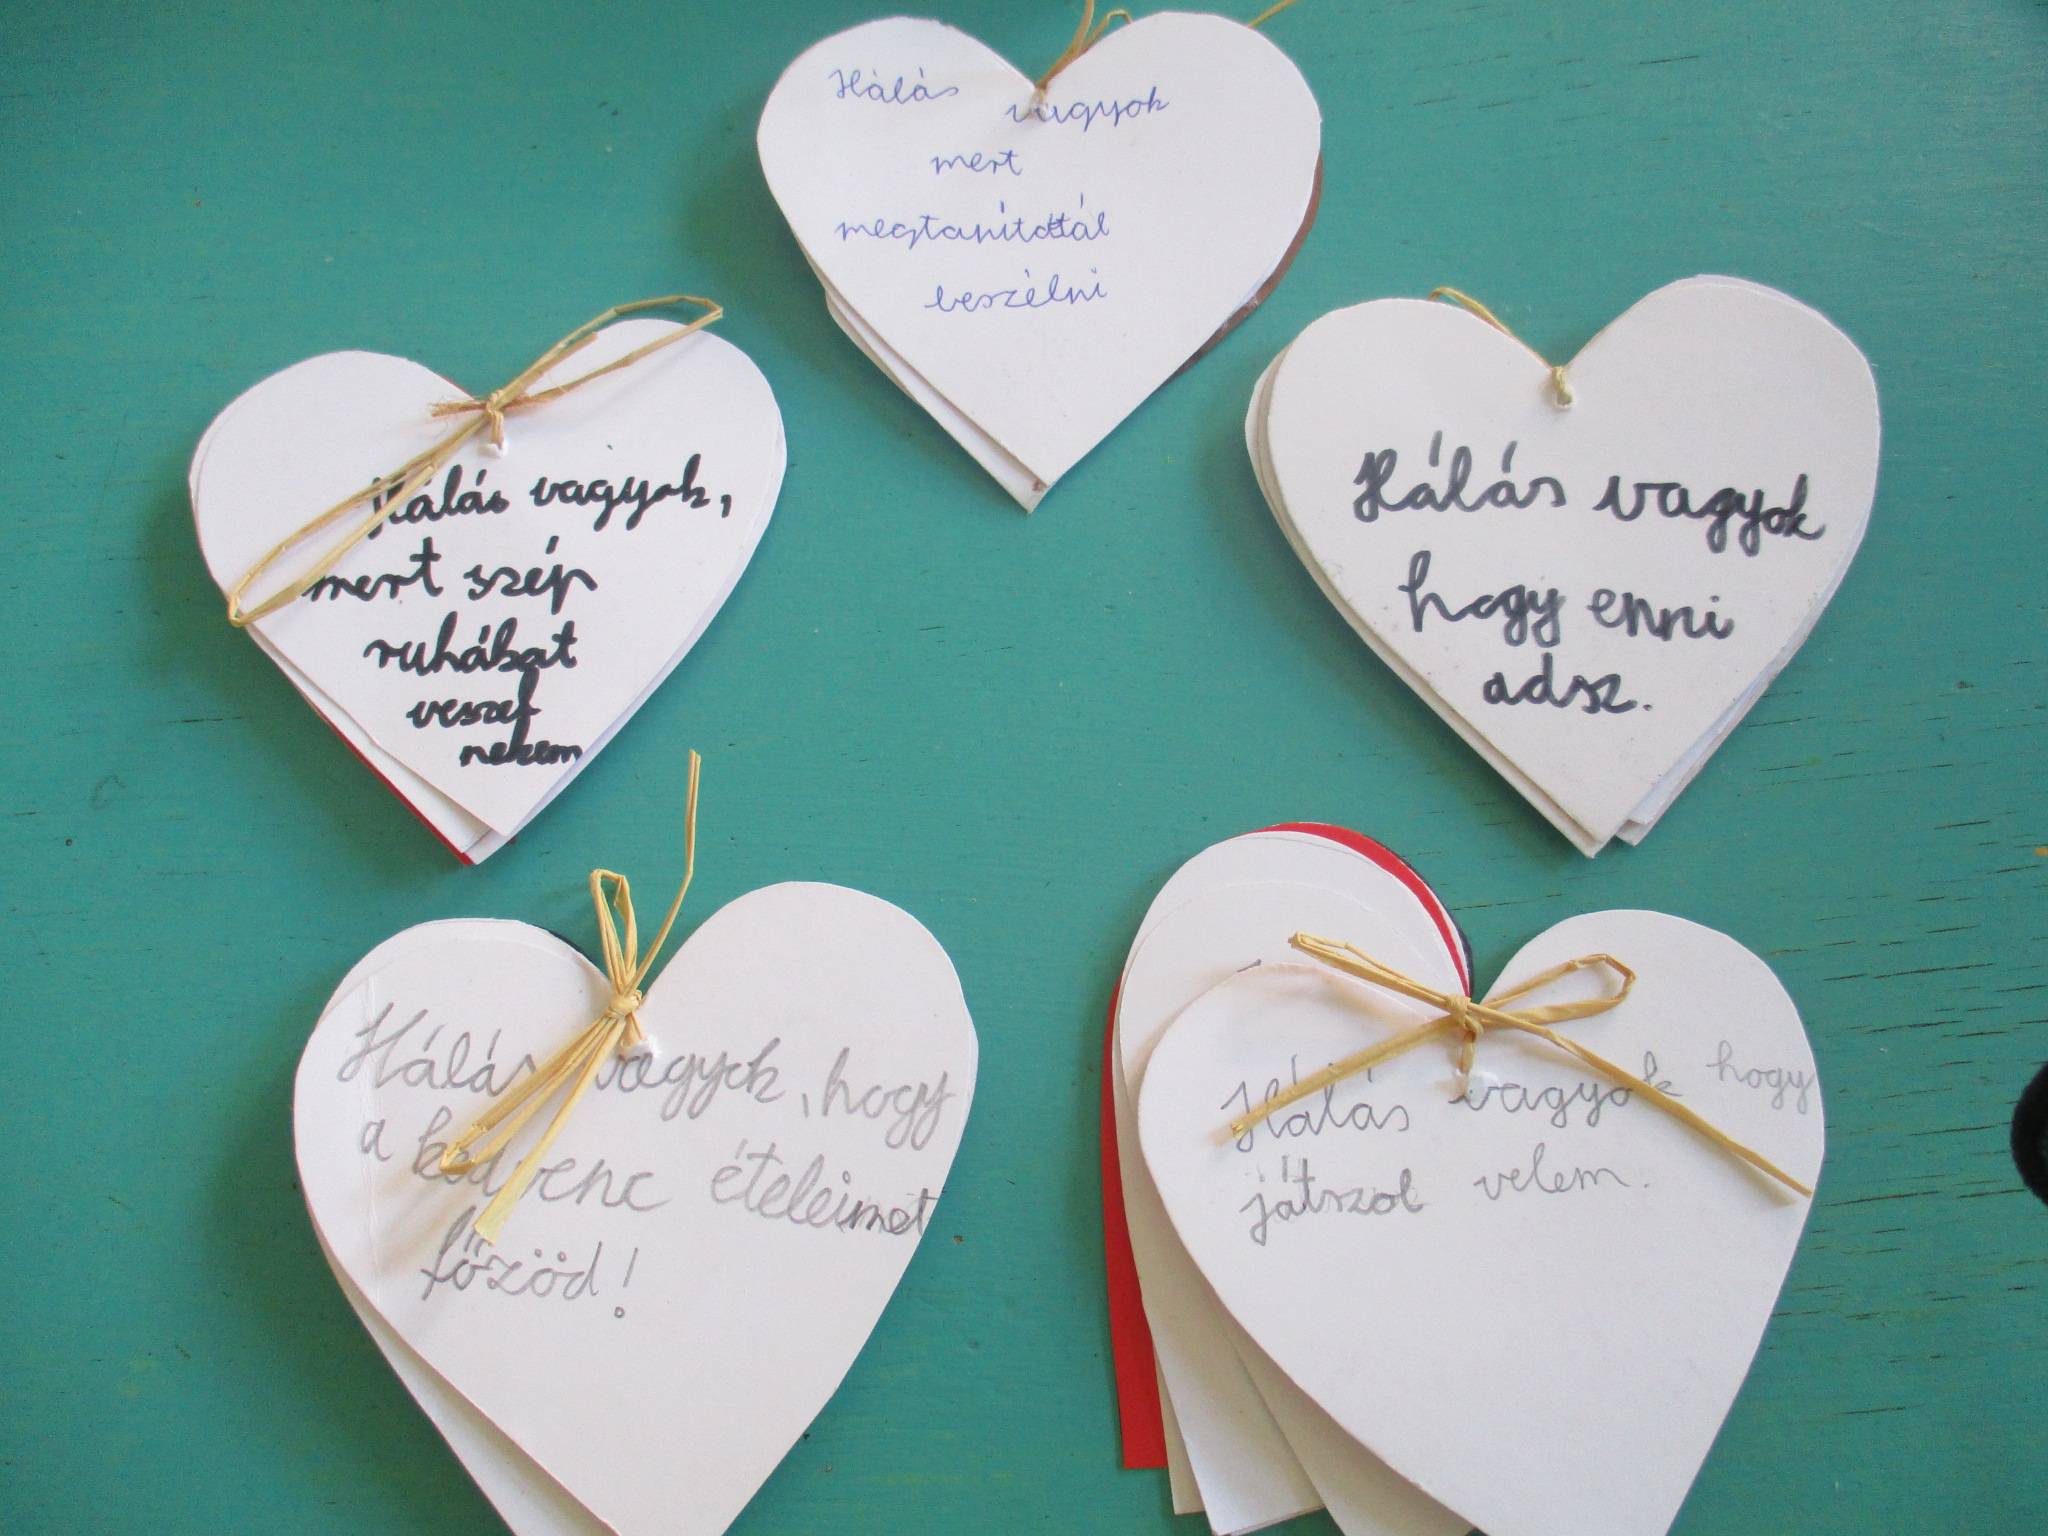 Hálás vagyok
mert
megtanítottál
beszélni
Hálás vagyok,
mert szép
ruhábat
veszel
nekem
Hálás vagyok
hogy enni
adsz.
Hálás vagyok, hogy
a kedvenc ételeimet
főzöd!
Hálás vagyok hogy
játszol velem.